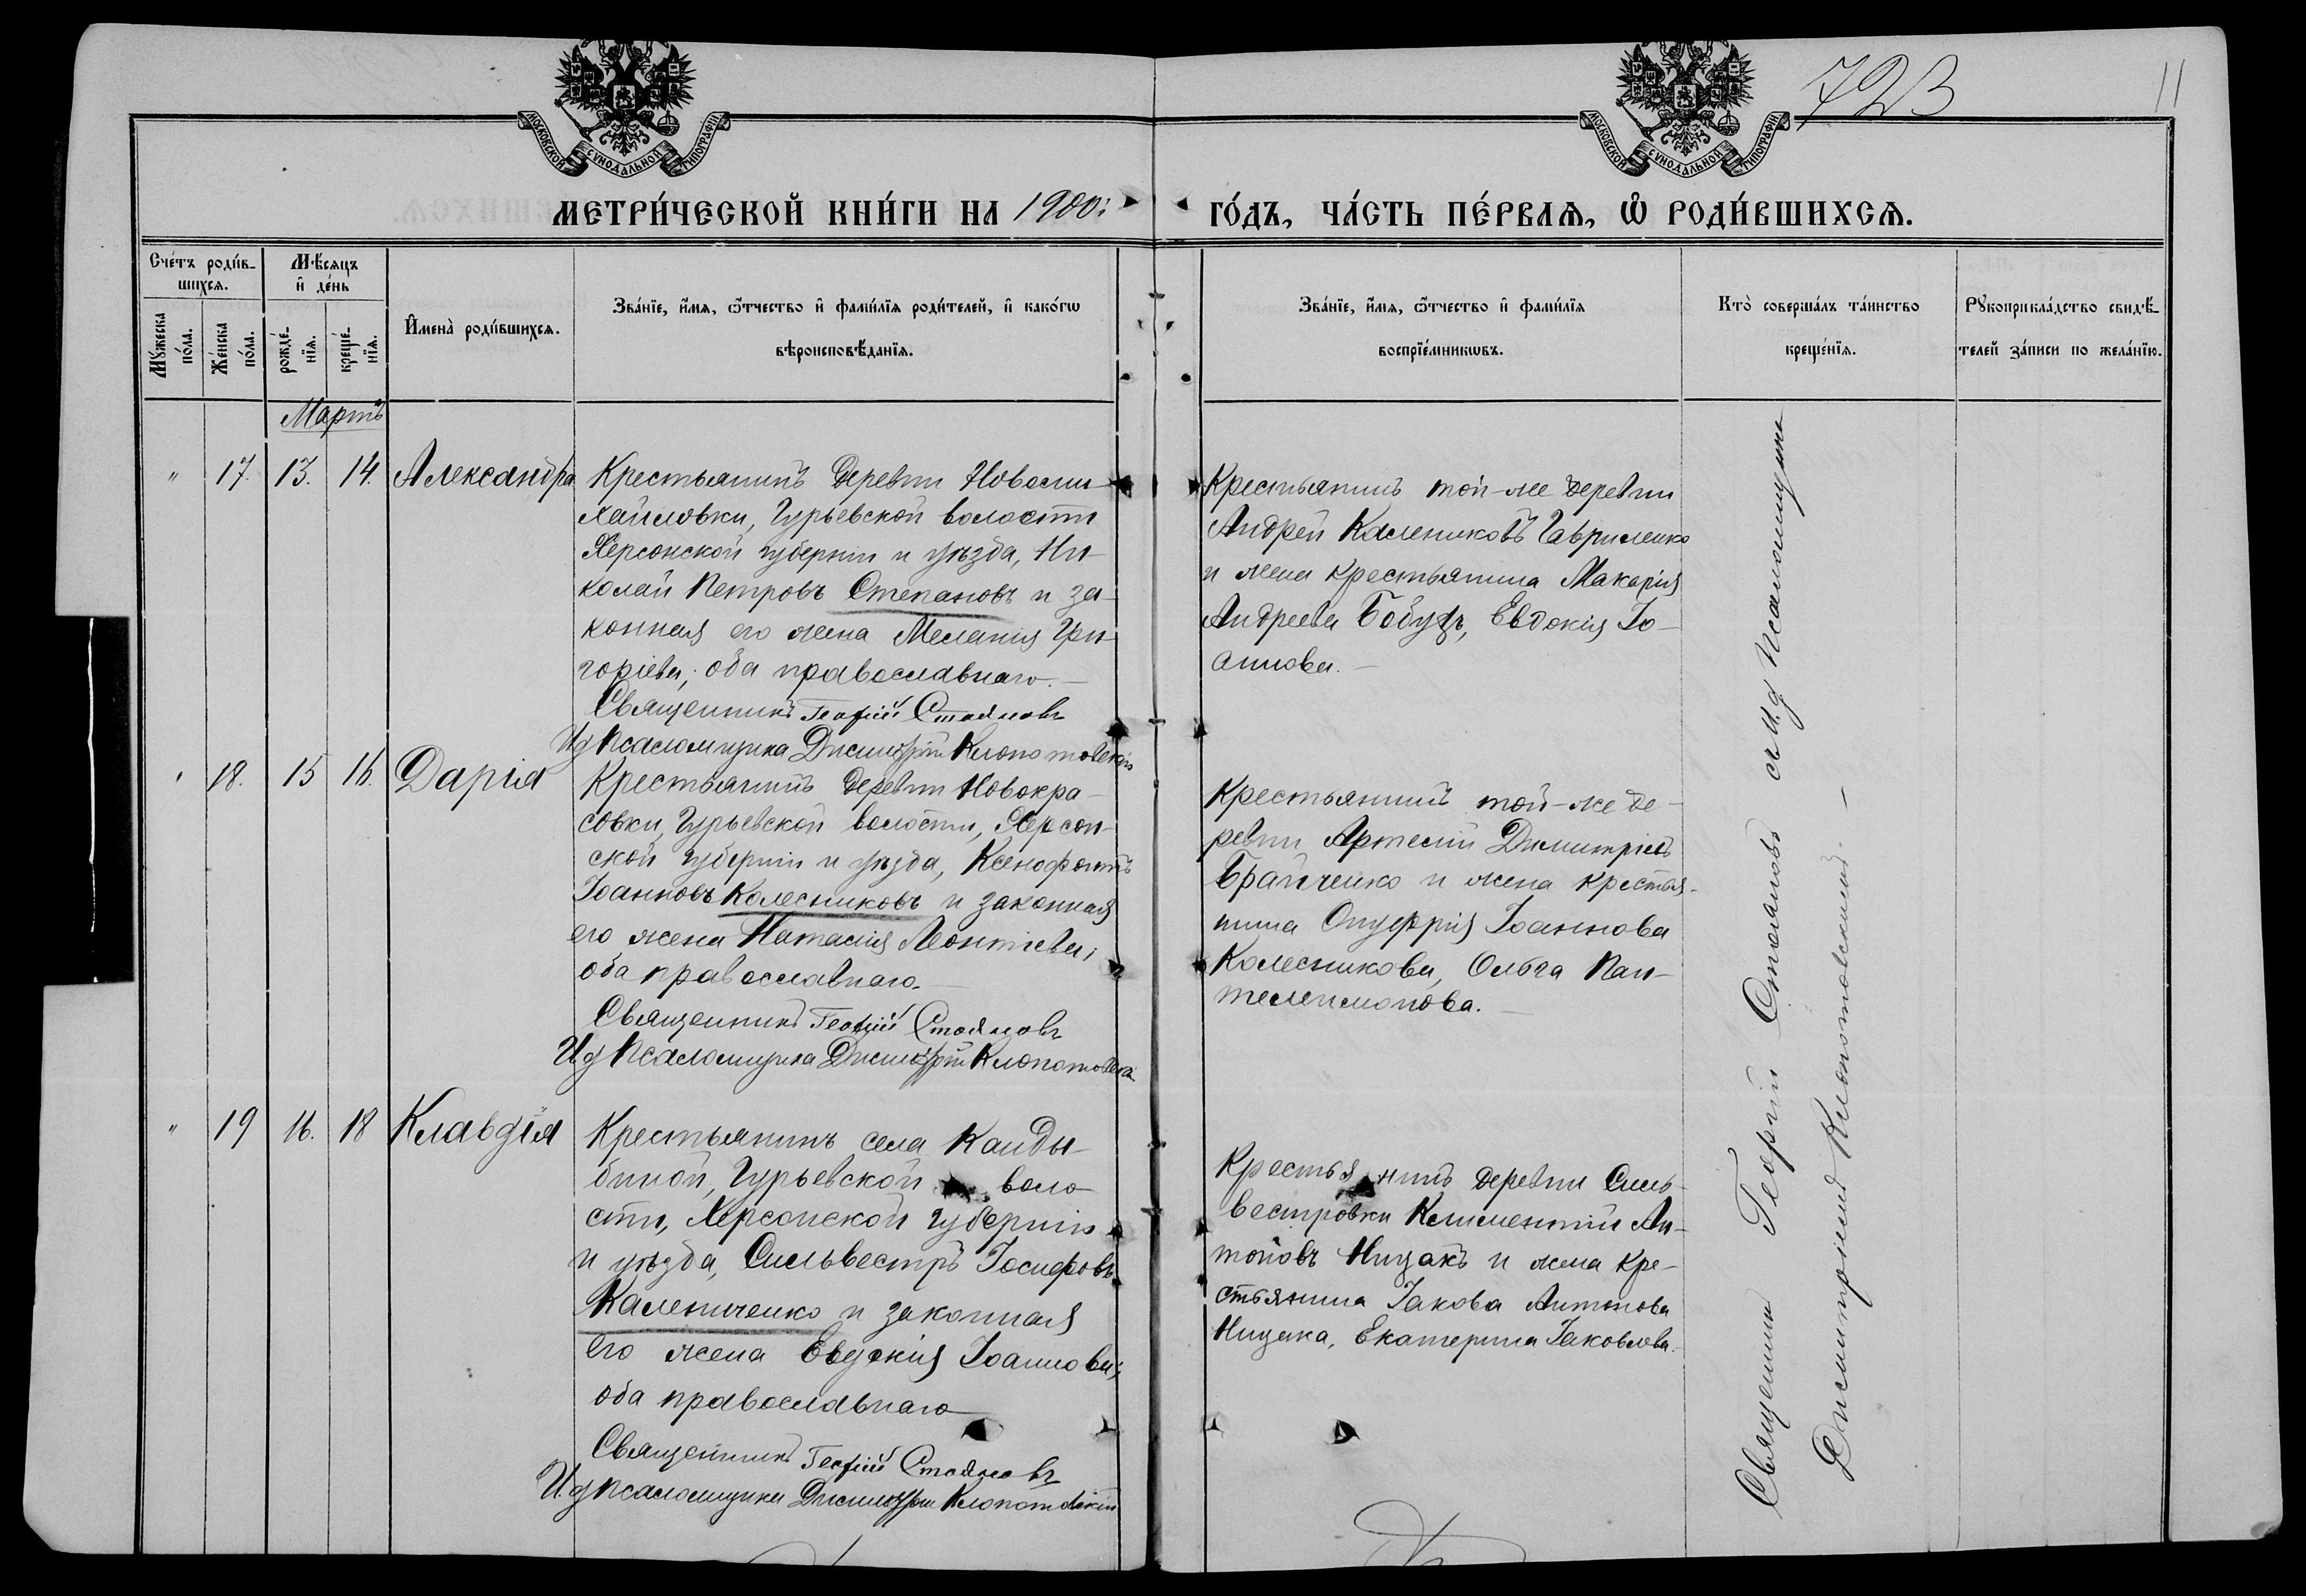 723
11
МОСКОВСКОЙ СѴНОДАЛЬНОЙ ТИПОГРАФІИ
МОСКОВСКОЙ СѴНОДАЛЬНОЙ ТИПОГРАФІИ
МЕТРИ́ЧЕСКОЙ КНИ́ГИ НА 1900:
ГО́ДЪ, ЧА́СТЬ ПЕ́РВАѦ, Ѽ РОДИ́ВШИХСѦ.
Сче́тъ роди́в-
шихсѧ.
Мѣ́сѧцъ
и҆ де́нь
Мꙋ́жеска
по́ла.
Же́нска
по́ла.
рожде́-
нїѧ.
креще́-
нїѧ.
И҆мена̀ роди́вшихсѧ.
Зва́нїе, и҆́мѧ, ѻ҆́тчество и҆ фами́лїѧ роди́телей, и҆ како́гѡ
вѣроисповѣ́данїѧ.
Зва́нїе, и҆́мѧ, ѻ҆́тчество и҆ фами́лїѧ
воспрїе́мникѡвъ.
Кто̀ соверша́лъ та́инство
креще́нїѧ.
Рꙋкоприкла́дство свидѣ́-
телей за́писи по жела́нїю.
Мартъ
" 17. 13. 14. Александра
Крестьянинъ деревни Новоми-
хайловки, Гурьевской волости
Херсонской губерніи и уѣзда, Ни-
колай Петровъ Степановъ и за-
конная его жена Меланія Гри-
горіева; оба православнаго.—
Священникъ Георгій Стояновъ
И д Псаломщика Димитрій Клопотовскій
Крестьянинъ той-же деревни
Андрей Калениковъ Гавриленко
и жена крестьянина Макарія
Андреева Евдокія Іо-
аннова.—
" 18. 15 16. Дарія
Крестьянинъ деревни Новокра-
совки, Гурьевской волости, Херсон-
ской губерніи и уѣзда, Ксенофонтъ
Іоанновъ Колесниковъ и законная
его жена Наталія Леонтіева;
оба православнаго.—
Священникъ Георгій Стояновъ
И д Псаломщика Димитрій Клопотовскій
Крестьянинъ той-же де-
ревни Артемій Димитріевъ
Брайченко и жена крестья-
нина Онуфрія Іоаннова
Колесникова, Ольга Пан-
телеимонова.—
" 19 16. 18 Клавдія
Крестьянинъ села Канды-
биной, Гурьевской воло-
сти, Херсонской губерніи
и уѣзда, Сильвестръ Іосифовъ
Калениченко и законная
его жена Евдокія Іоаннова;
оба православнаго—
Священникъ Георгій Стояновъ
И.д Псаломщика Димитрій Клопотовскій
Крестьянинъ деревни Силь-
вестровки Климентій Ан-
тоновъ Ницакъ и жена кре-
стьянина Іакова Антонова
Ницака, Екатерина Іаковлева.
Священникъ Георгій Стояновъ съ И.д Псаломщика
Димитріемъ Клопотовскимъ.—